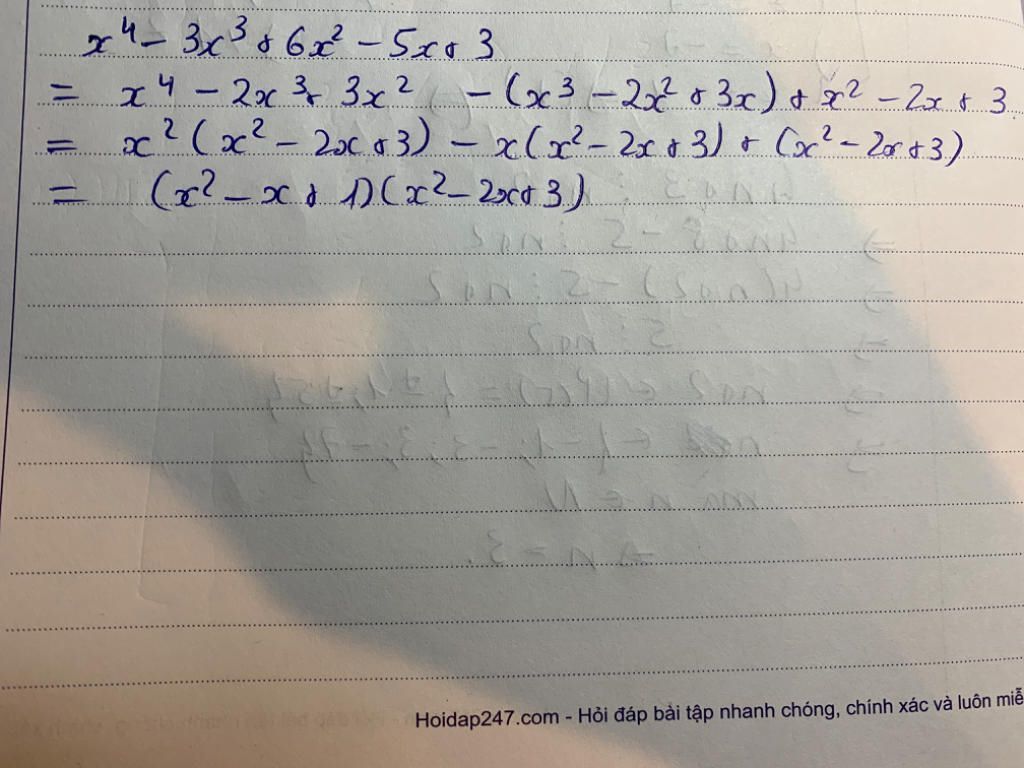 x⁴ - 3x³ + 6x² - 5x + 3
= x⁴ - 2x³ + 3x² - (x³ - 2x² + 3x) + x² - 2x + 3
= x²(x² - 2x + 3) - x(x² - 2x + 3) + (x² - 2x + 3)
= (x² - x + 1)(x² - 2x + 3)
Hoidap247.com - Hỏi đáp bài tập nhanh chóng, chính xác và luôn